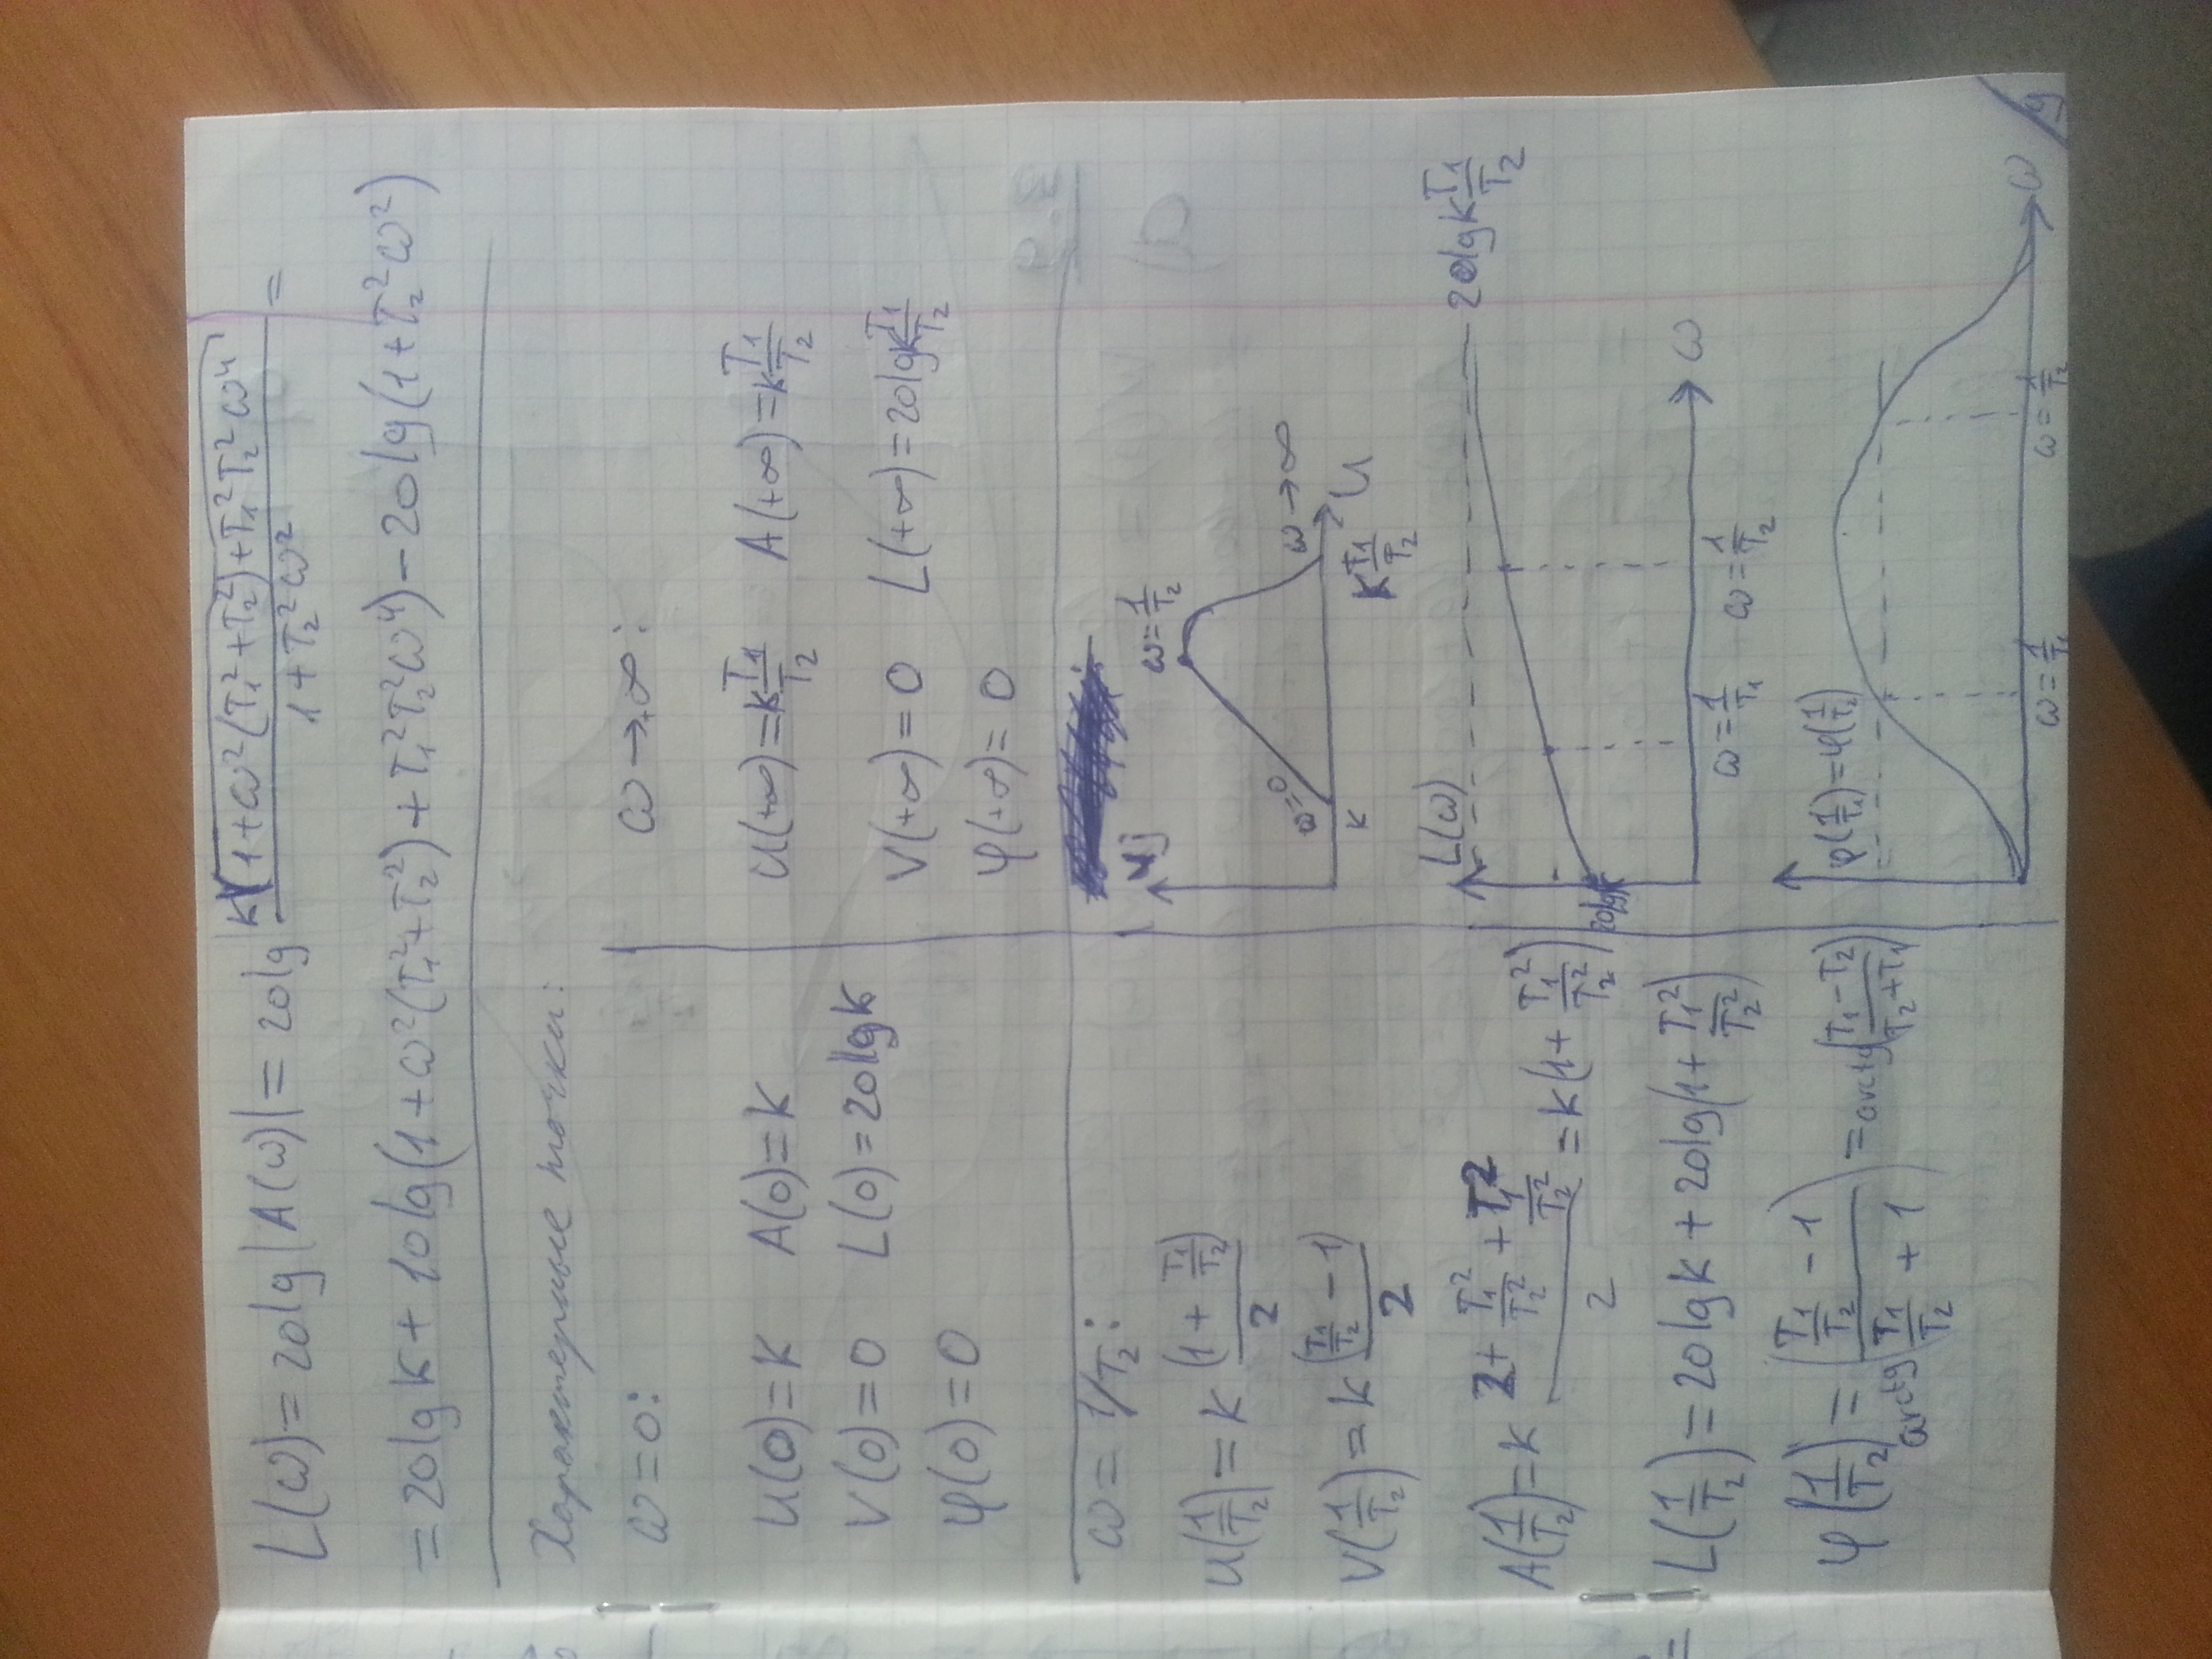 L(ω) = 20lg|A(ω)| = 20lg K√(1+ω²(T₁²+T₂²)+T₁²T₂²ω⁴) / (1+T₂²ω²) =
= 20lg K + 10lg(1+ω²(T₁²+T₂²)+T₁²T₂²ω⁴) − 20lg(1+T₂²ω²)
Характерные точки:
ω = 0:
U(0) = K A(0) = K
V(0) = 0 L(0) = 20lgK
φ(0) = 0
ω → +∞:
U(+∞) = K T₁/T₂ A(+∞) = K T₁/T₂
V(+∞) = 0 L(+∞) = 20lgK T₁/T₂
φ(+∞) = 0
ω = 1/T₂:
U(1/T₂) = K (1 + T₁/T₂) / 2
V(1/T₂) = K (T₁/T₂ − 1) / 2
A(1/T₂) = K (2 + T₁²/T₂² + T₁²/T₂²) / 2 = K(1 + T₁²/T₂²)
L(1/T₂) = 20lgK + 20lg(1 + T₁²/T₂²)
φ(1/T₂) = arctg((T₁/T₂ − 1) / (T₁/T₂ + 1)) = arctg((T₁ − T₂) / (T₂ + T₁))
Vj
ω = 1/T₂
ω = 0
ω → ∞
K
K T₁/T₂
U
L(ω)
20lgK T₁/T₂
20lgK
ω
ω = 1/T₁
ω = 1/T₂
φ(1/T₁) = φ(1/T₂)
ω
ω = 1/T₁
ω = 1/T₂
9